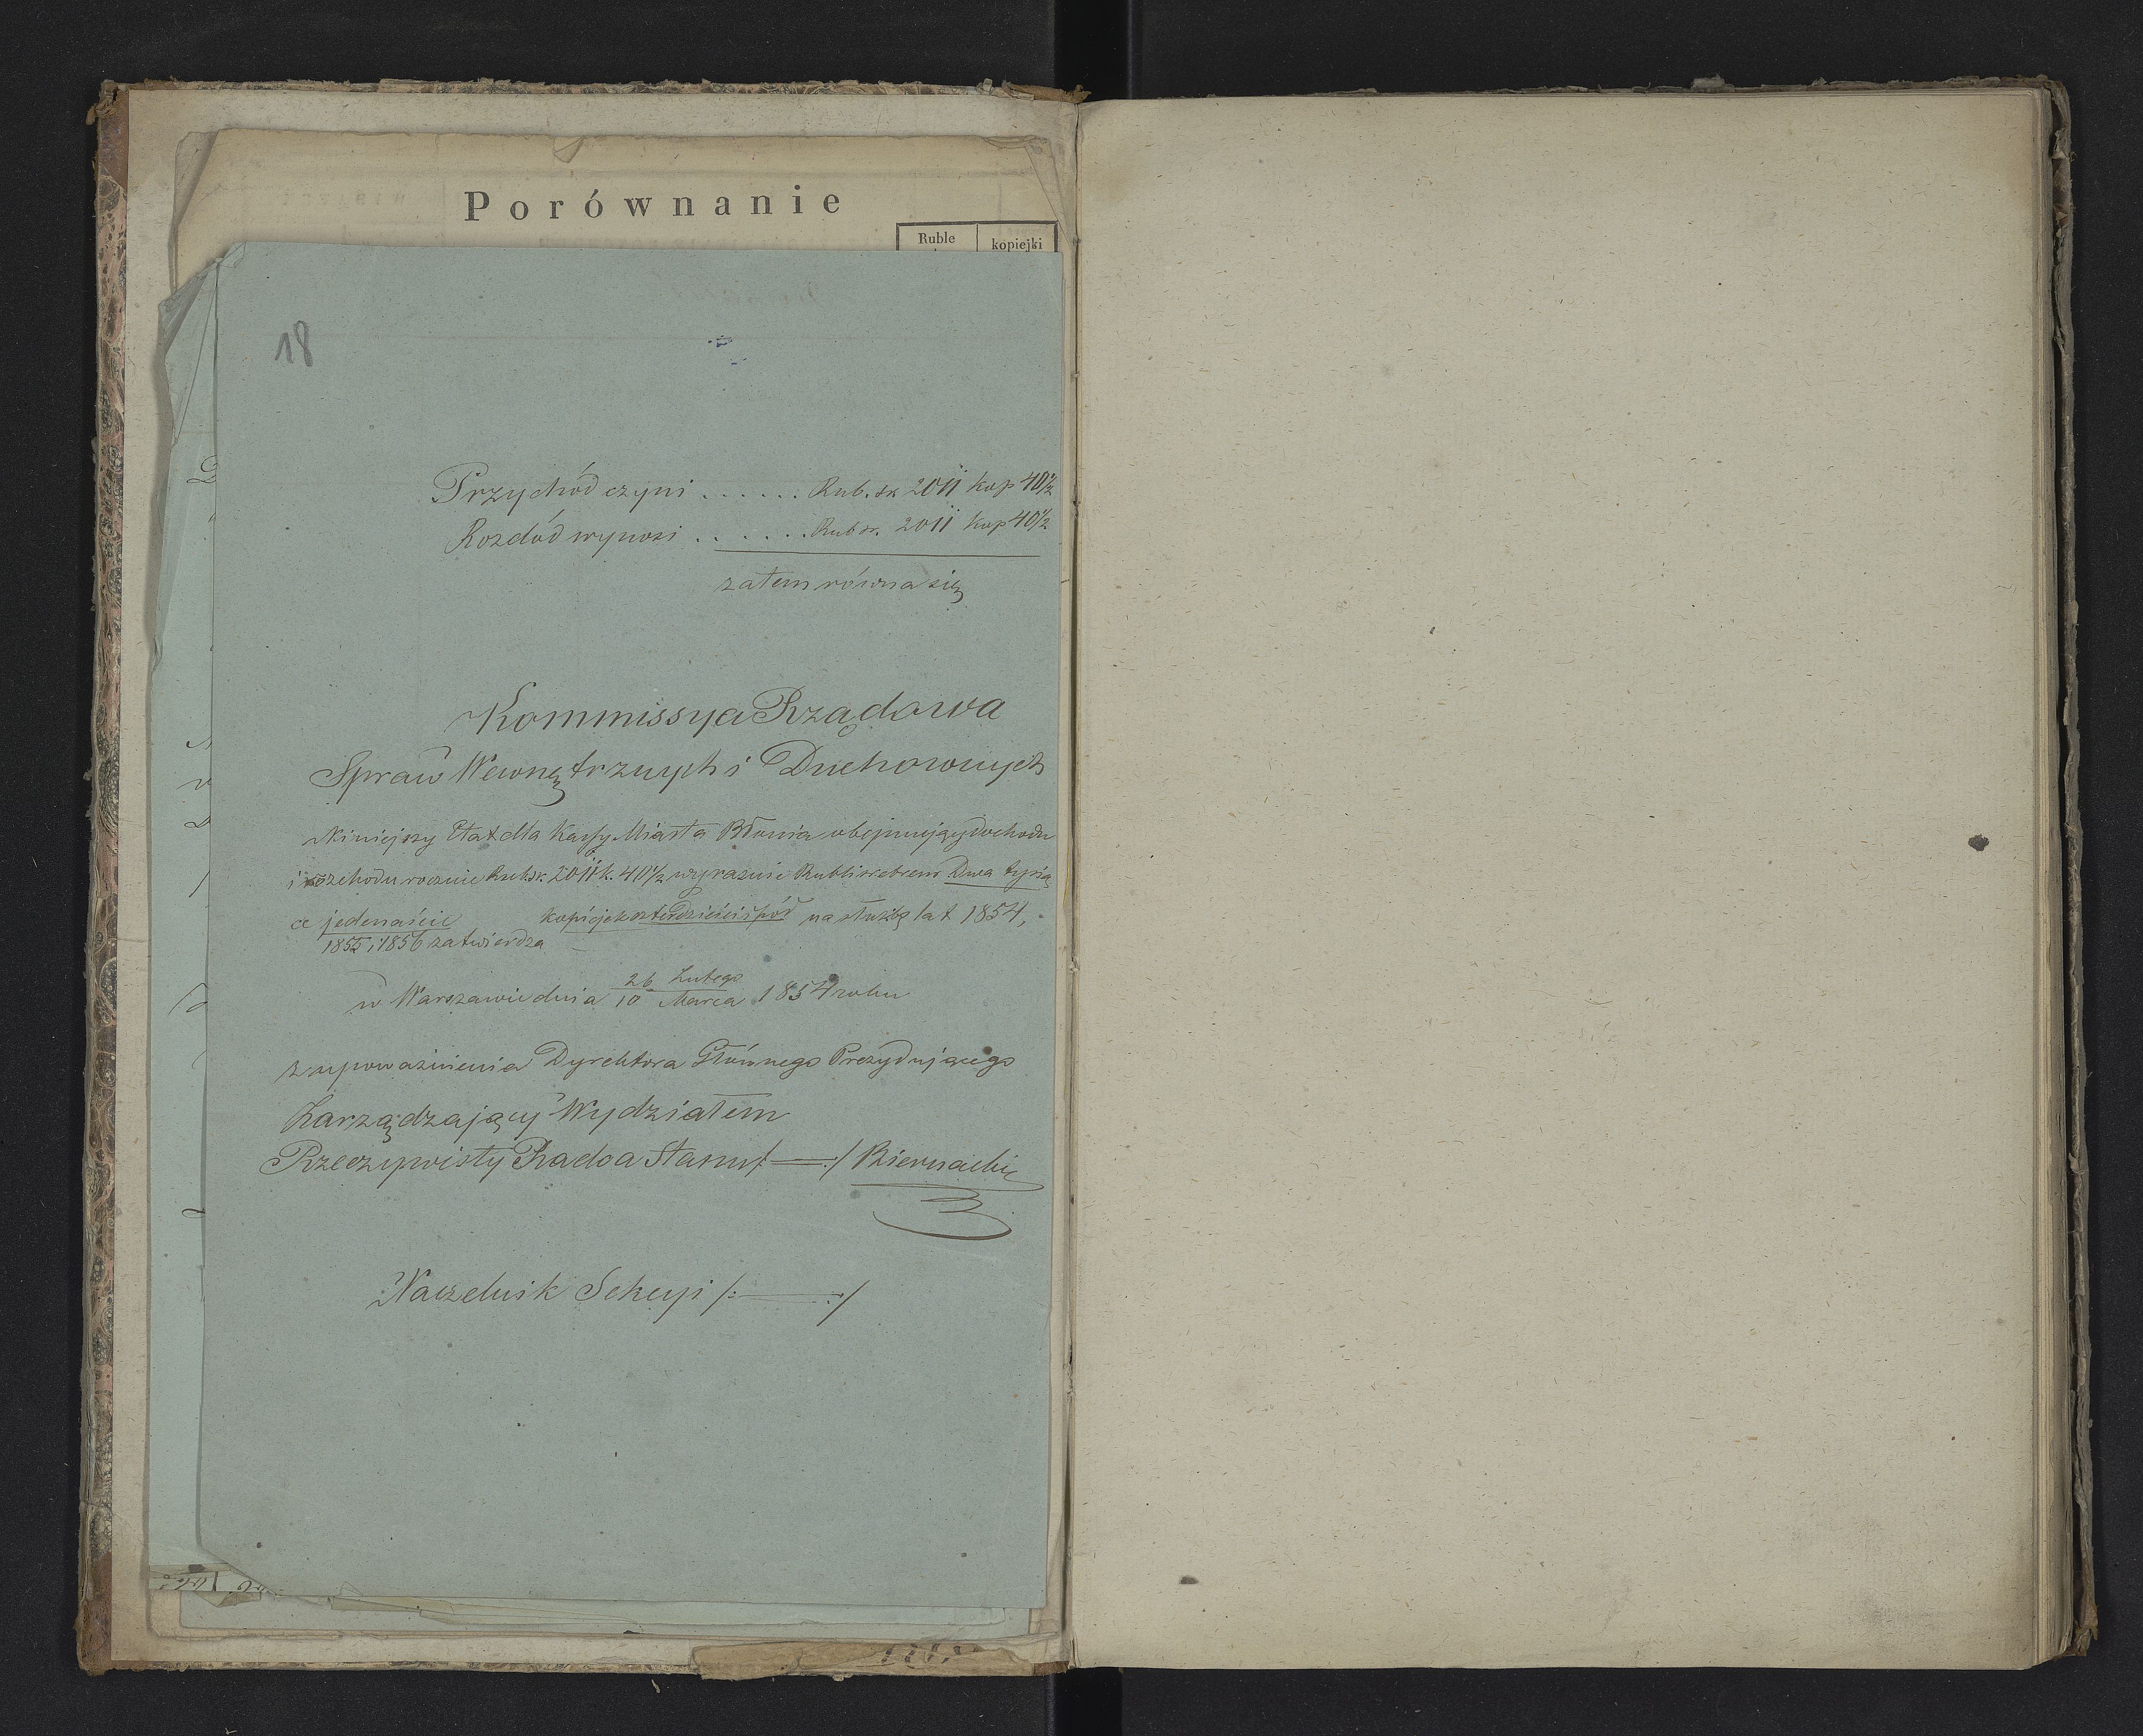 Porównanie
Ruble kopiejki
18
Przychód czyni . . . . . . Rub. sr. 2011 kop 40½
Rozchód wynosi . . . . . . Rub sr. 2011 kop 40½
zatem równa się
Kommissya Rządowa
Spraw Wewnętrznych i Duchownych
Niniejszy Etat dla Kassy Miasta Błonia obejmujący dochodu
i rozchodu rocznie Rub. sr. 2011 k. 40½ wyraźnie Rubli srebrem Dwa tysią
ce jedenaście kopiejek czterdzieści i pół na służbę lat 1854,
1855 i 1856 zatwierdza
w Warszawie dnia 26 Lutego / 10 Marca 1854 roku
z upoważnienia Dyrektora Głównego Prezydującego
Zarządzający Wydziałem
Rzeczywisty Radca Stanu /:——:/ Biernacki
Naczelnik Sekcyi /:——:/